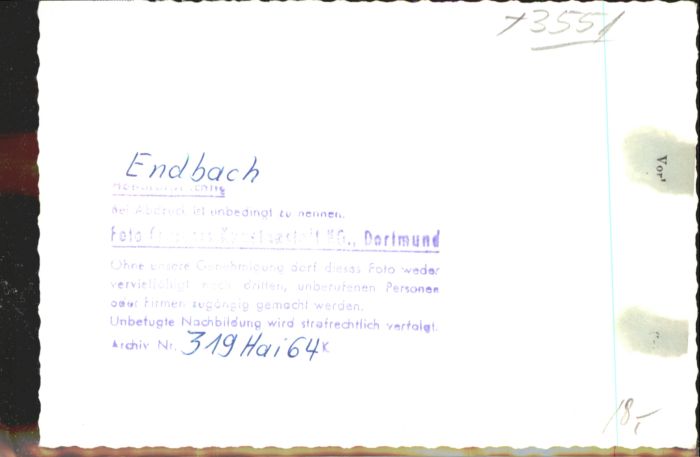 +3551
Endbach
Honorarpflichtig
Bei Abdruck ist unbedingt zu nennen.
Foto Kunstanstalt KG., Dortmund
Ohne unsere Genehmigung darf dieses Foto weder
vervielfältigt noch dritten, unberufenen Personen
oder Firmen zugängig gemacht werden.
Unbefugte Nachbildung wird strafrechtlich verfolgt.
Archiv Nr. 319 Hai 64 K
Vor
18,-